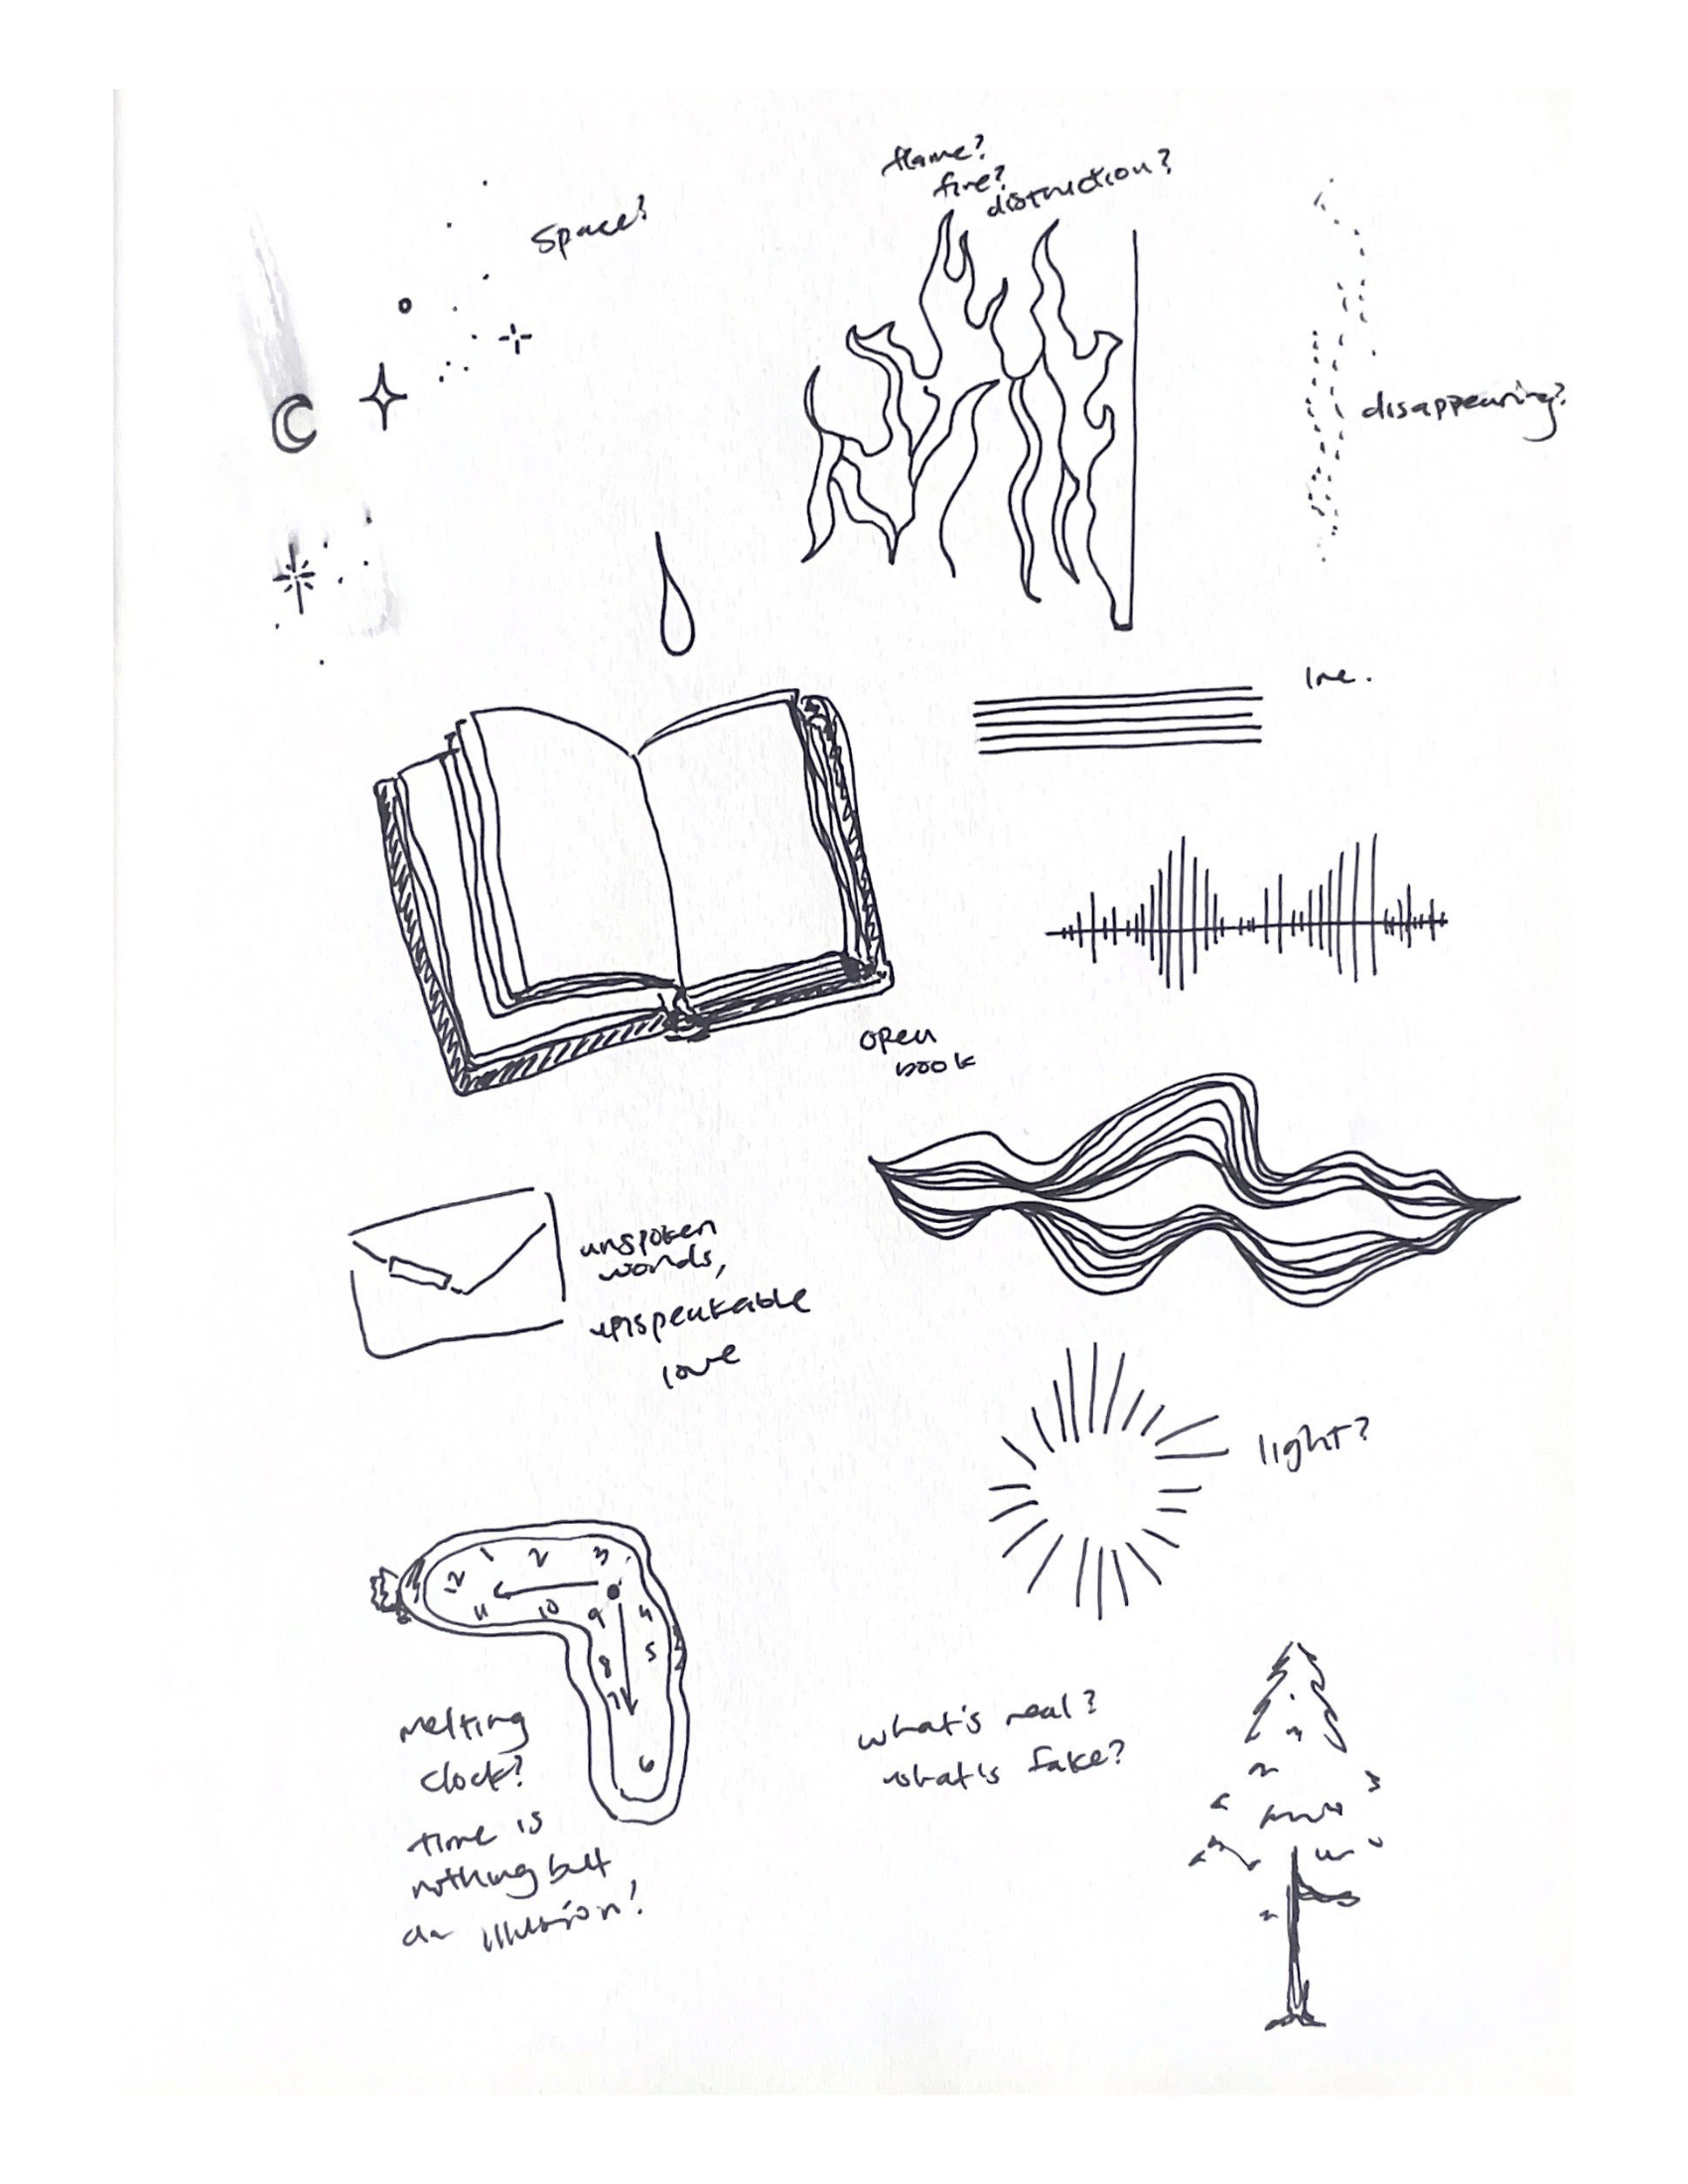 flame?
fire?
distruction?
Space?
disappearing?
line.
open
book
unspoken
words,
unspeakable
love
light?
12 1 2 3
11 10 9 4
8 5
7
6
melting
clock?
time is
nothing but
an illusion!
what's real?
what's fake?